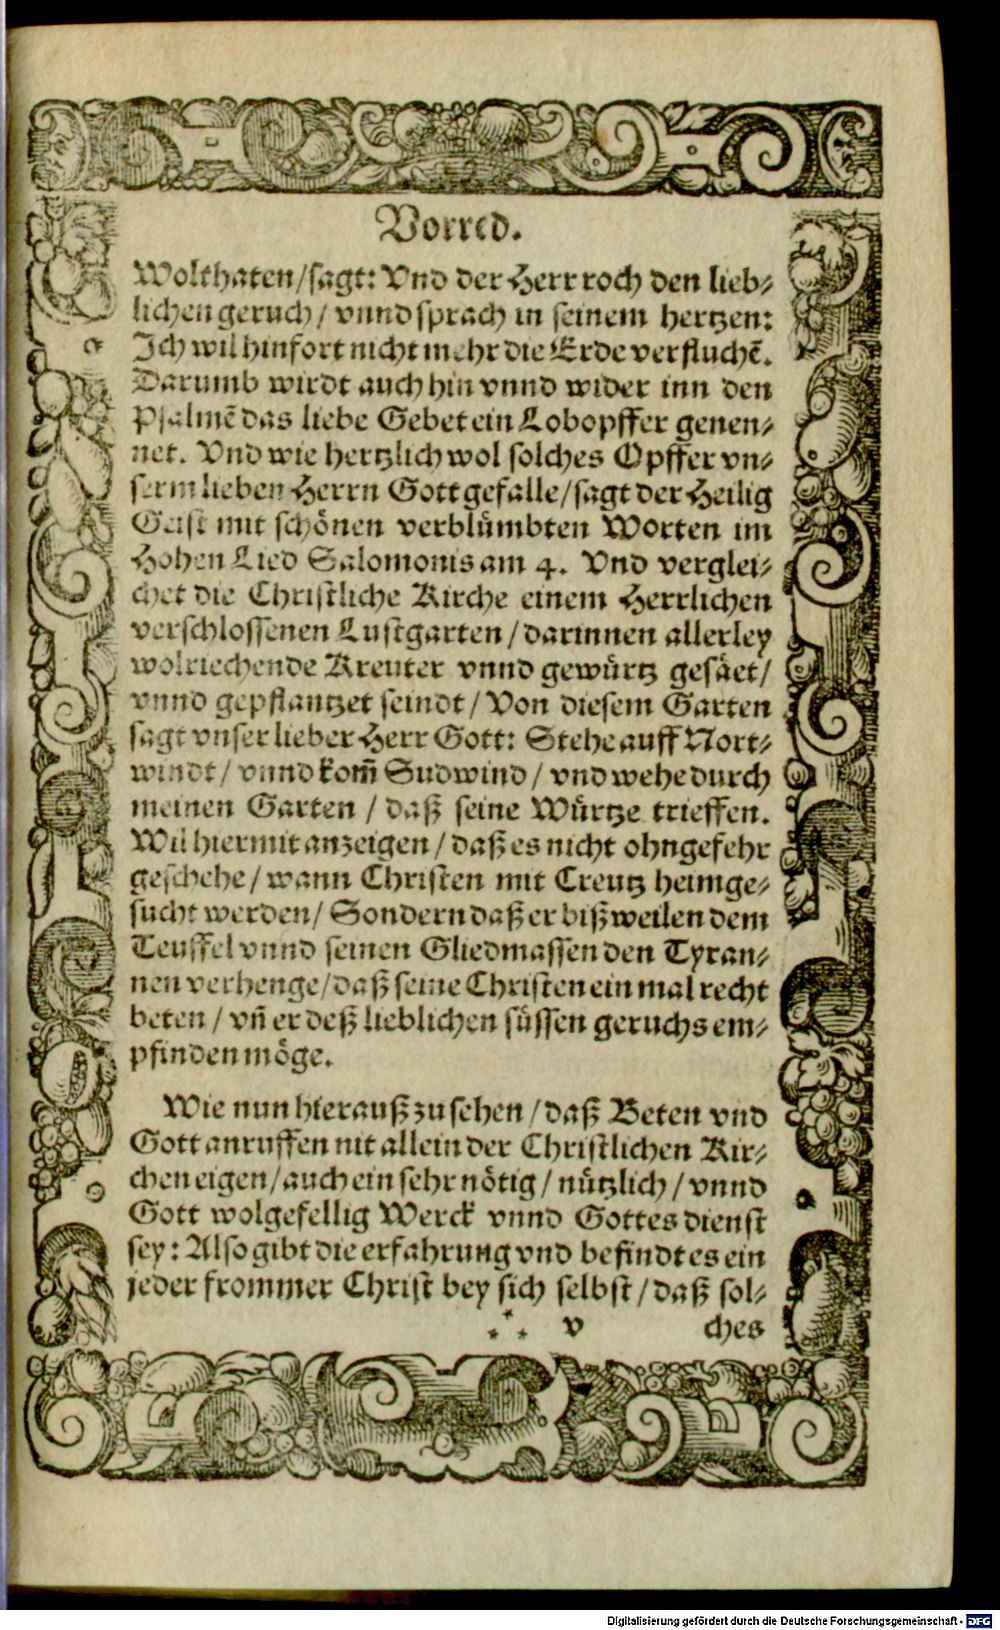 Vorred.
Wolthaten/sagt: Vnd der Herr roch den lieb-
lichen geruch/ vnnd sprach in seinem hertzen:
Ich wil hinfort nicht mehr die Erde verfluchẽ.
Darumb wirdt auch hin vnnd wider inn den
Psalmẽ das liebe Gebet ein Lobopffer genen-
net. Vnd wie hertzlich wol solches Opffer vn-
serm lieben Herrn Gott gefalle/sagt der Heilig
Geist mit schönen verblümbten Worten im
Hohen Lied Salomonis am 4. Vnd verglei-
chet die Christliche Kirche einem Herrlichen
verschlossenen Lustgarten/darinnen allerley
wolriechende Kreuter vnnd gewürtz gesäet/
vnnd gepflantzet seindt/ Von diesem Garten
sagt vnser lieber Herr Gott: Stehe auff Nort-
windt/ vnnd kom̃ Sudwind/ vnd wehe durch
meinen Garten / daß seine Würtze trieffen.
Wil hiermit anzeigen/ daß es nicht ohngefehr
geschehe/ wann Christen mit Creutz heimge-
sucht werden/ Sondern daß er bißweilen dem
Teuffel vnnd seinen Gliedmassen den Tyran-
nen verhenge/daß seine Christen ein mal recht
beten/ vñ er deß lieblichen süssen geruchs em-
pfinden möge.
Wie nun hierauß zu sehen/daß Beten vnd
Gott anruffen nit allein der Christlichen Kir-
chen eigen/auch ein sehr nötig/ nützlich/ vnnd
Gott wolgefellig Werck vnnd Gottes dienst
sey: Also gibt die erfahrung vnd befindt es ein
jeder frommer Christ bey sich selbst/daß sol-
⁂ v ches
Digitalisierung gefördert durch die Deutsche Forschungsgemeinschaft - DFG